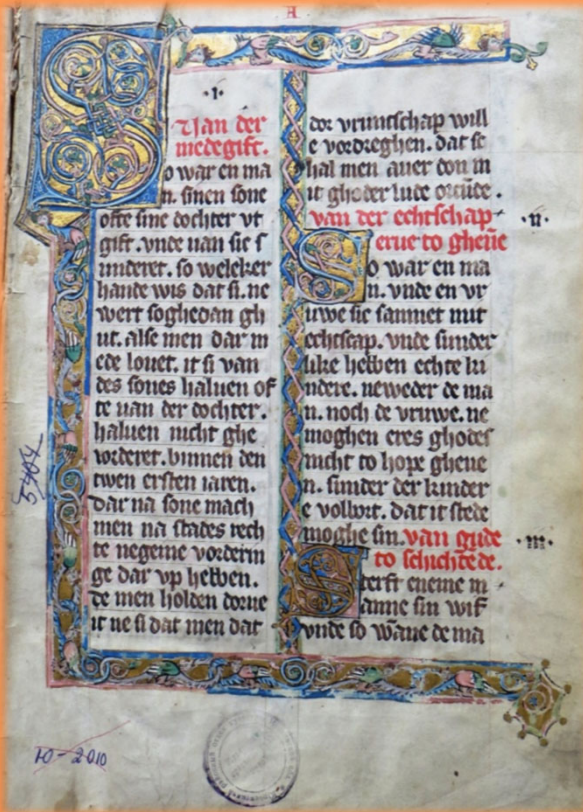 A
·I·
Van der
medegift.
So war en ma
n. sinen sone
ofte sine dochter vt
gift. vnde uan sie s
underet. so weleker
hande wis dat si. ne
wert soghedan gh
ut. alse men dar m
ede louet. it si van
des sones haluen of
te uan der dochter.
haluen nicht ghe
vorderet. binnen den
twen ersten iaren.
dar na sone mach
men na stades rech
te negeine vorderin
ge dar vp hebben.
de men holden dorue
it ne si dat men dat
dor vruntschap will
e vordreghen. dat se
hal men auer don m
it ghoder lude orcūde.
van der echtschap
·II·
erue to gheūe
So war en ma
n. vnde en vr
uwe sie samnet mit
echtscap. vnde sunder
like hebben echte ki
ndere. neweder de ma
n. noch de vruwe. ne
moghen eres ghodes
nicht to hope gheue
n. sunder der kinder
e volbort. dat it stede
moghe sin. van gude
·III·
to schichtēde.
Sterft eneme m
anne sin wif
vnde so wāne de ma
5404
Ю-2010